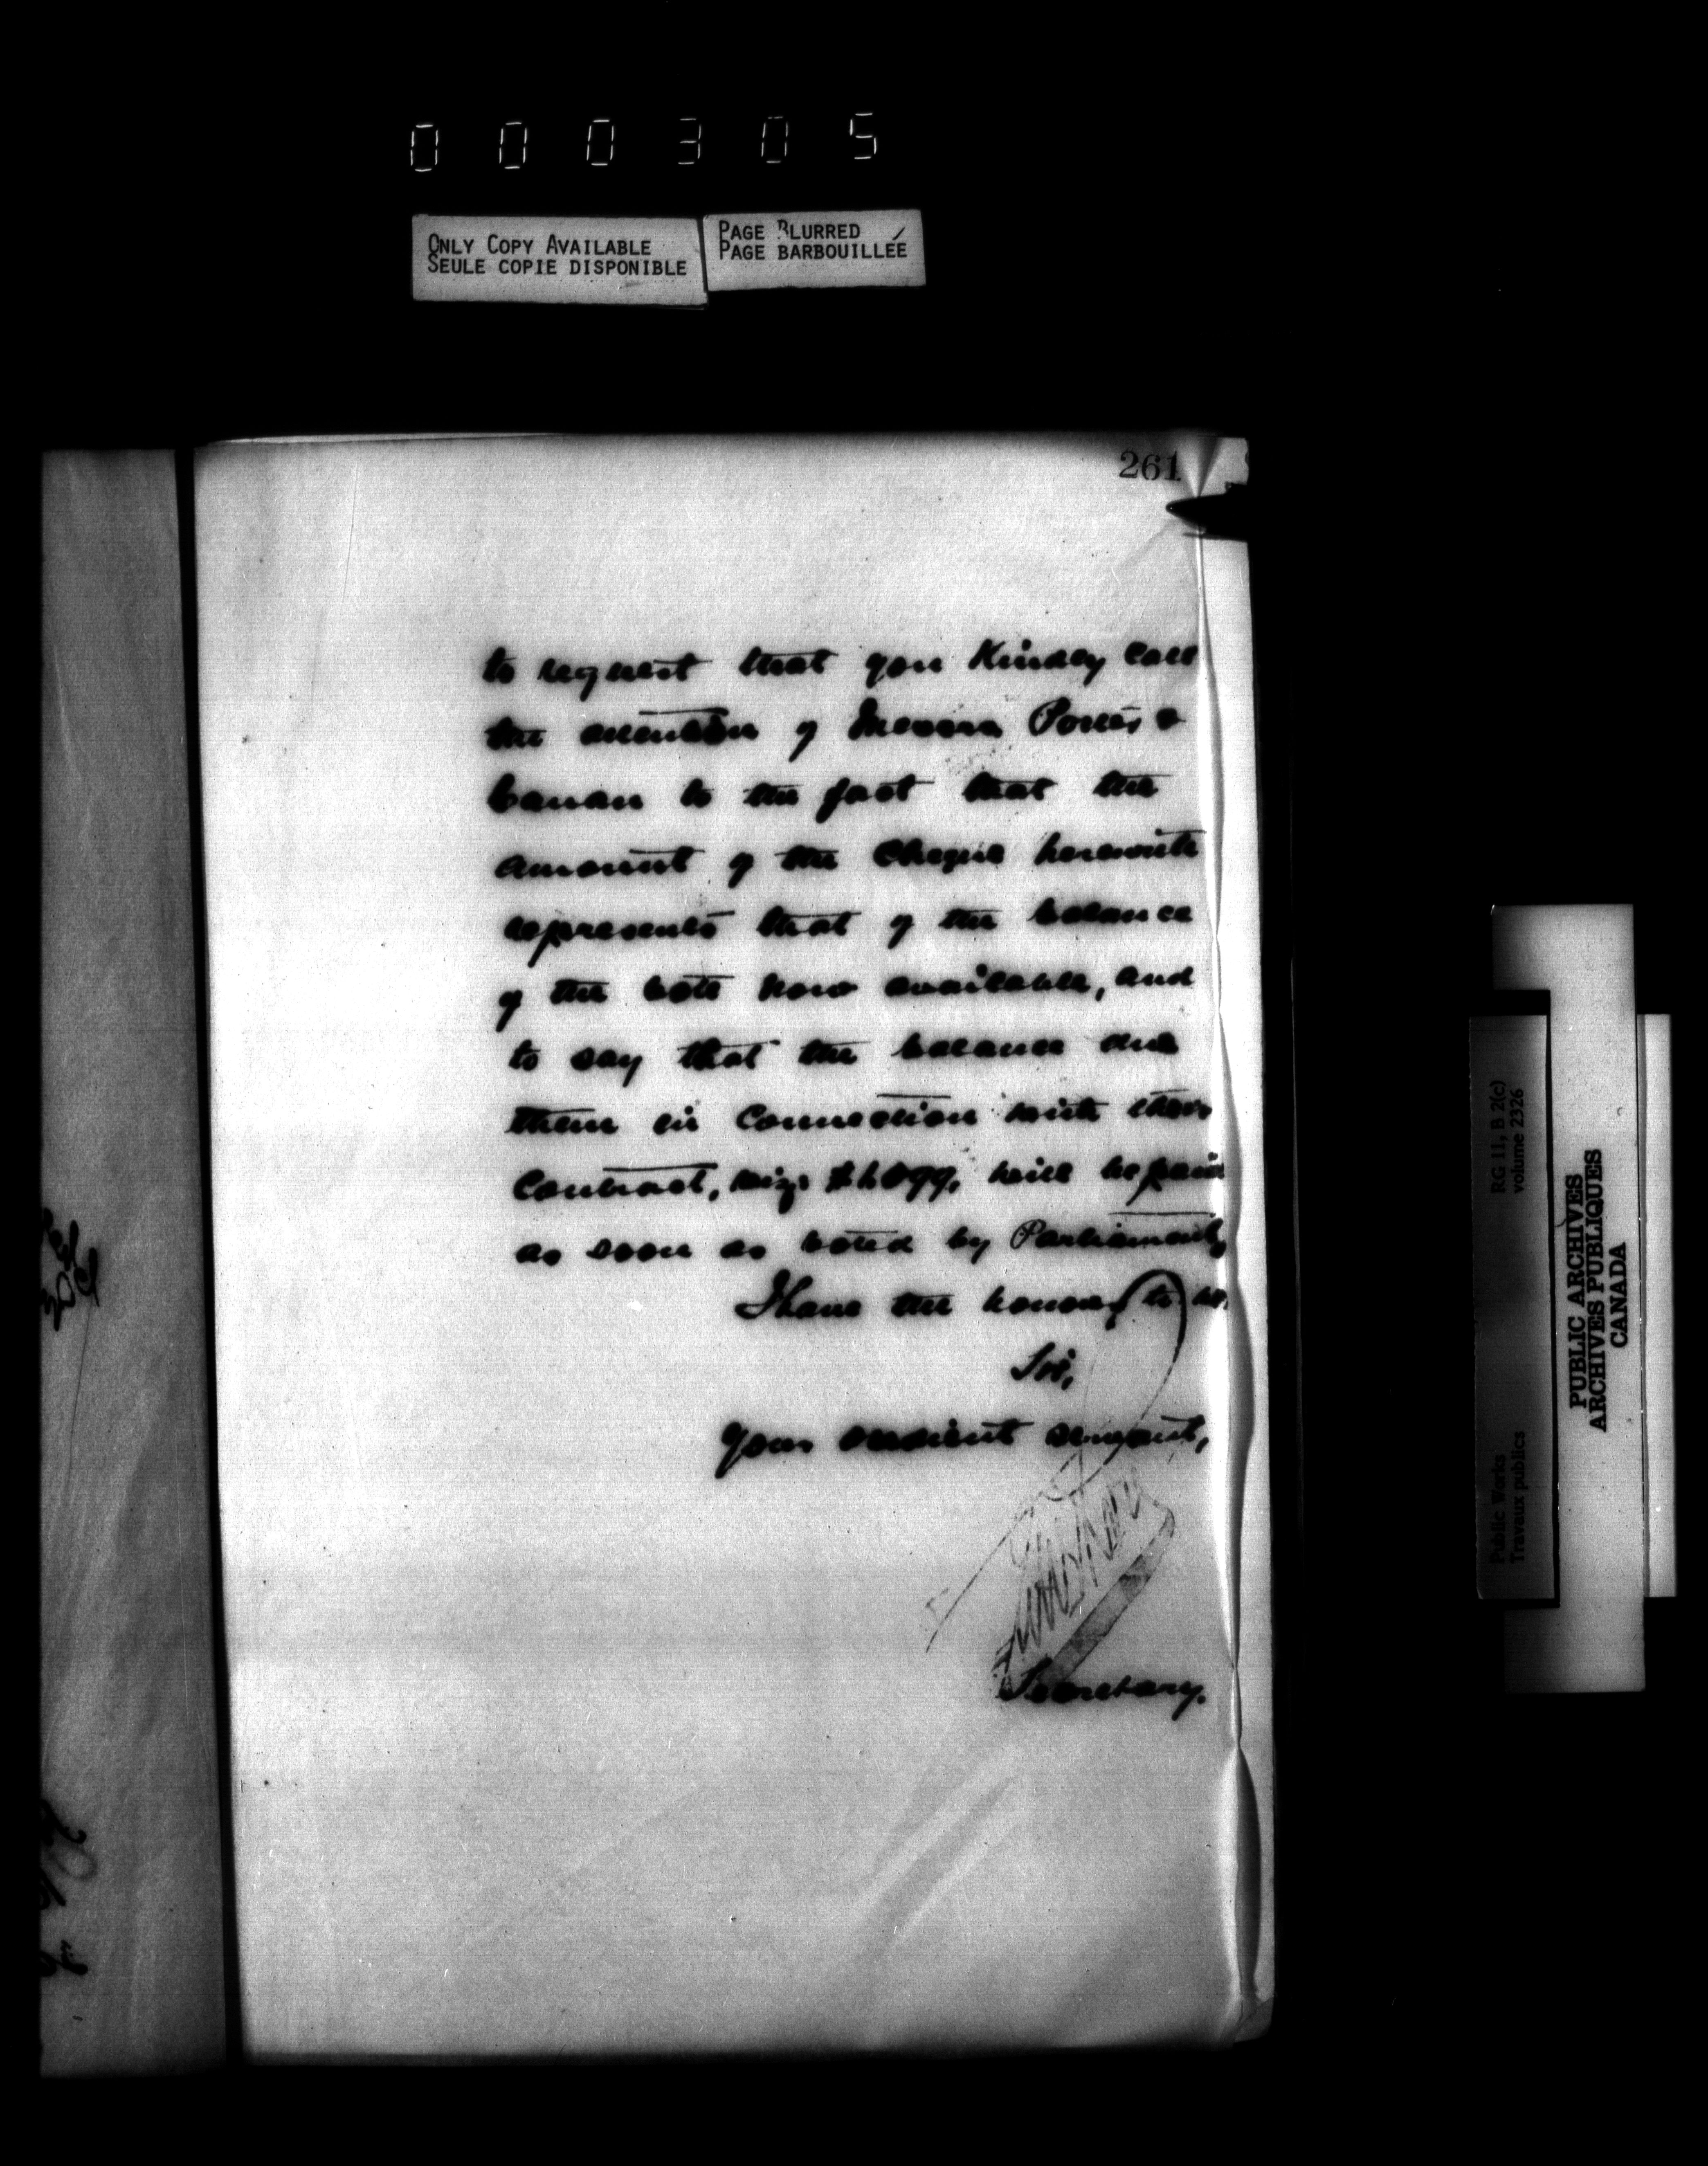 000305
ONLY COPY AVAILABLE
SEULE COPIE DISPONIBLE
PAGE BLURRED
PAGE BARBOUILLÉE
261
to request that you Kindly call
the attention of Messrs &
to the fact that the
amount of the Cheque herewith
represents that of the balance
of the vote now available, and
to say that the balance due
them in Connection with their
Contract, viz: will be paid
as soon as voted by Parliament,
I have the honor to be,
Sir,
Your obedient servant,
Secretary.
RG 11, B 2(c)
volume 2326
Public Works
Travaux publics
PUBLIC ARCHIVES
ARCHIVES PUBLIQUES
CANADA